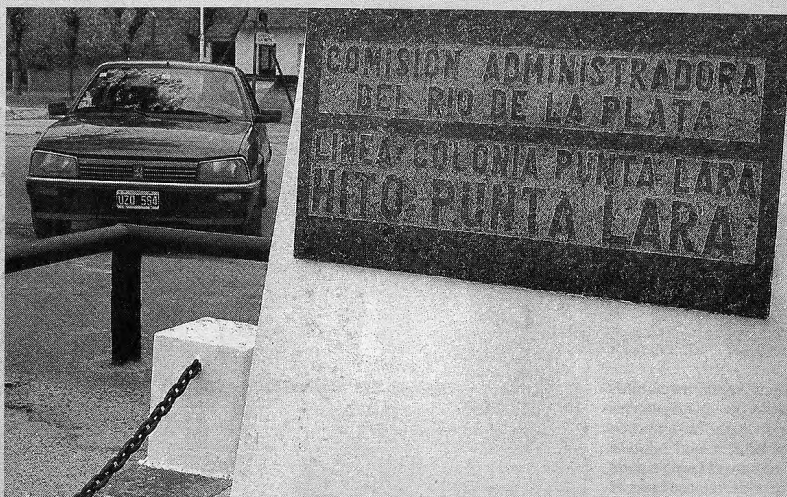 COMISION ADMINISTRADORA
DEL RIO DE LA PLATA
LINEA: COLONIA PUNTA LARA
HITO: PUNTA LARA